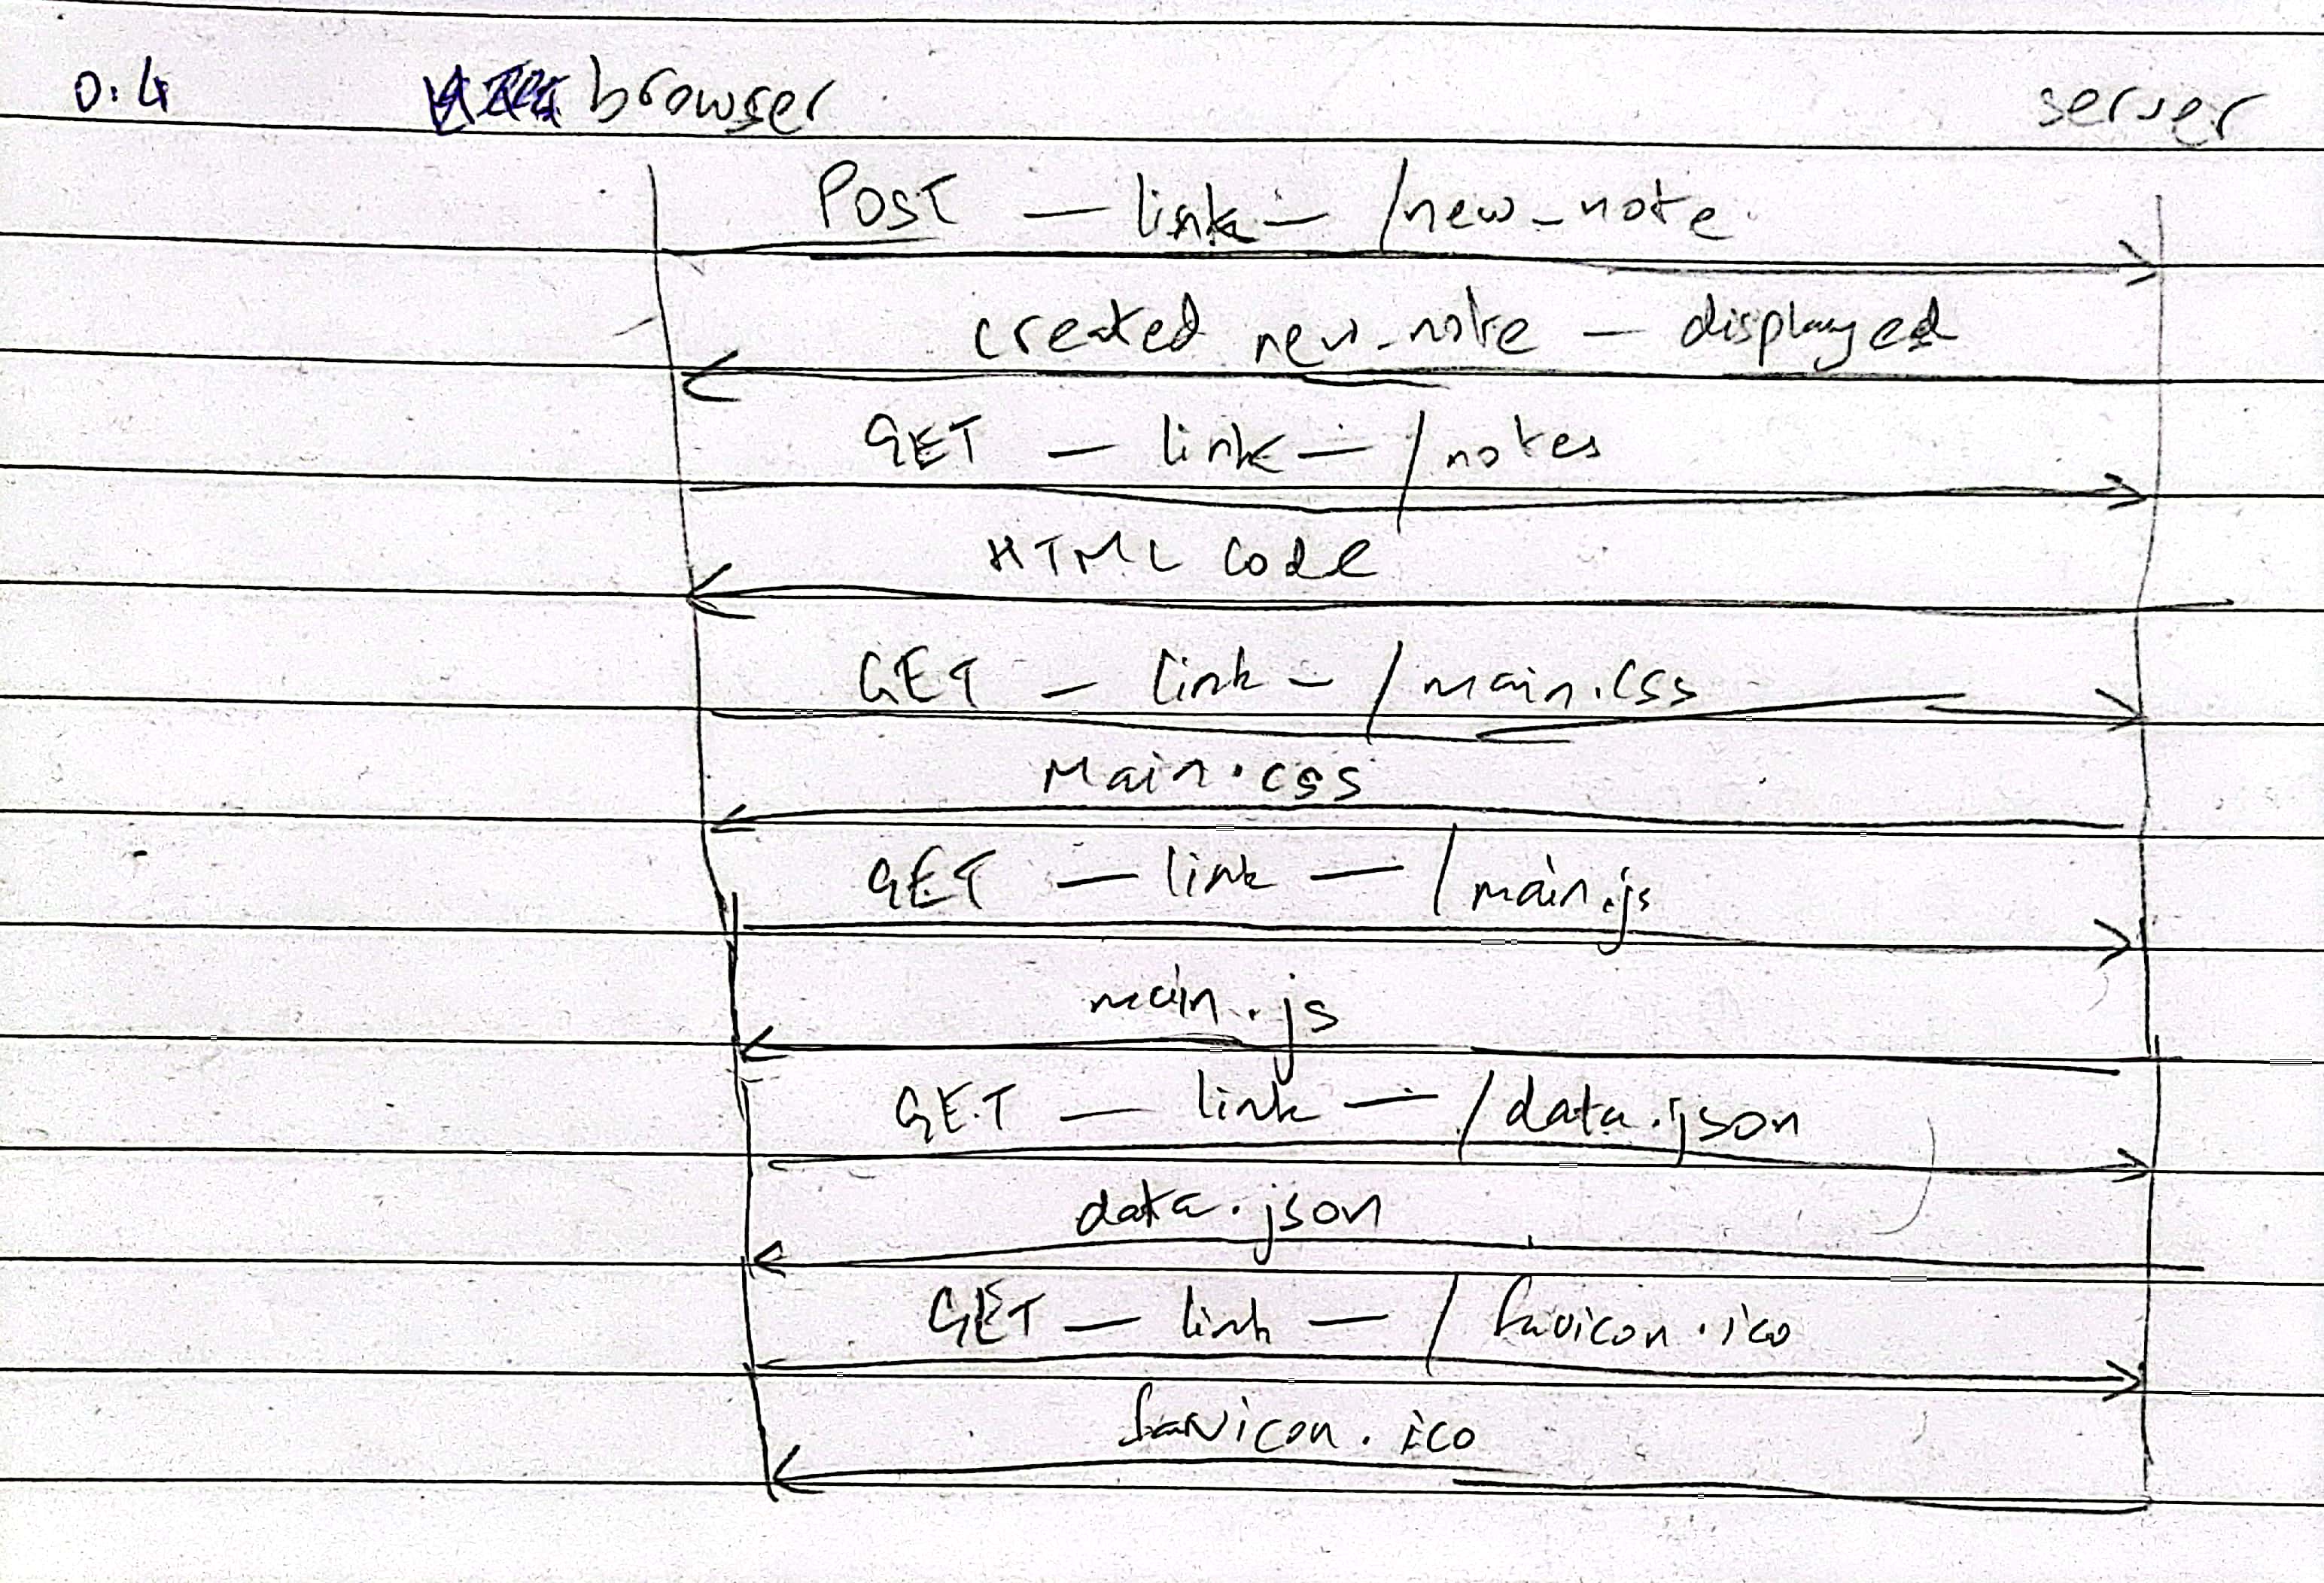 0.4 browser server
POST — link — /new_note
created new_note — displayed
GET — link — /notes
HTML Code
GET — link — /main.css
Main.css
GET — link — /main.js
main.js
GET — link — /data.json
data.json
GET — link — /favicon.ico
favicon.ico